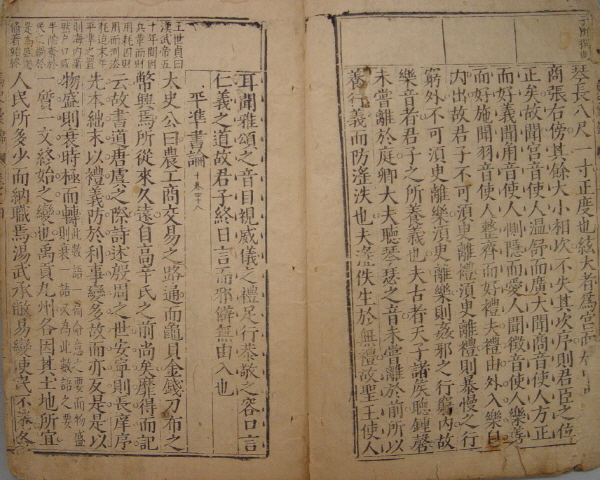 琴長八尺一寸正度也絃大者爲宮
商張右傍其餘大小相次不失其次序則君臣之位
正矣故聞宮音使人温舒而廣大聞商音使人方正
而好義聞角音使人惻隱而愛人聞徵音使人樂善
而好施聞羽音使人整齊而好禮夫禮由外入樂自
内出故君子不可須臾離禮須臾離禮則暴慢之行
窮外不可須臾離樂須臾離樂則姦邪之行窮内故
樂音者君子之所養義也夫古者天子諸侯聽鐘磬
未嘗離於庭卿大夫聽琴瑟之音未嘗離於前所以
養行義而防淫泆也夫淫佚生於無禮故聖王使人
耳聞雅頌之音目視威儀之禮足行恭敬之容口言
仁義之道故君子終日言而邪僻無由入也
平準書論
王世貞曰
漢武帝五
十年間因
兵革而財
用耗因財
用而刑酷
太史公曰農工商交易之路通而龜貝金錢刀布之
幣興焉所從來久遠自高辛氏之前尚矣靡得而記
云故書道唐虞之際詩述殷周之世安寧則長庠序
先本絀末以禮義防於利事變多故而亦反是是以
物盛則衰時極而轉
一質一文終始之變也禹貢九州各因其土地所宜
人民所多少而納職焉湯武承敝易變使民不倦各